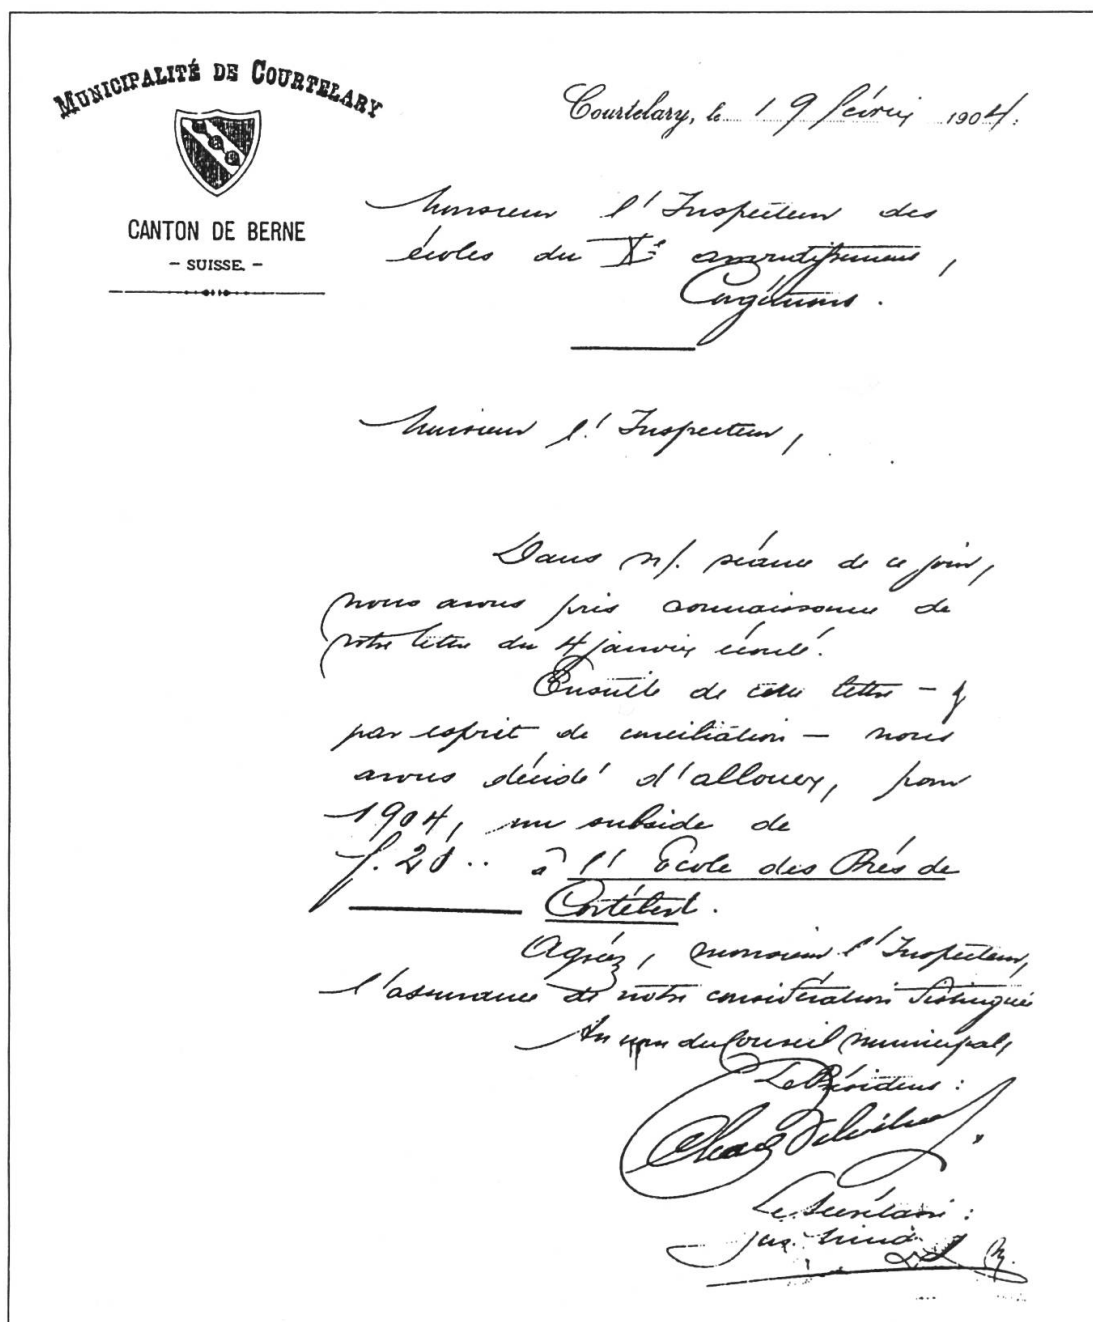 MUNICIPALITÉ DE COURTELARY
CANTON DE BERNE
- SUISSE. -
Courtelary, le 19 février 1904.
Monsieur l'Inspecteur des
écoles du Xe arrondissement,
Corgémont.
Monsieur l'Inspecteur,
Dans n/. séance de ce jour,
nous avons pris connaissance de
votre lettre du 4 janvier écoulé.
Ensuite de cette lettre - &
par esprit de conciliation - nous
avons décidé d'allouer, pour
1904, un subside de
f. 20 .. à l'Ecole des Prés de
Cortébert.
Agréez, monsieur l'Inspecteur,
l'assurance de notre considération distinguée
Au nom du Conseil municipal,
Le Président :
Le Secrétaire :